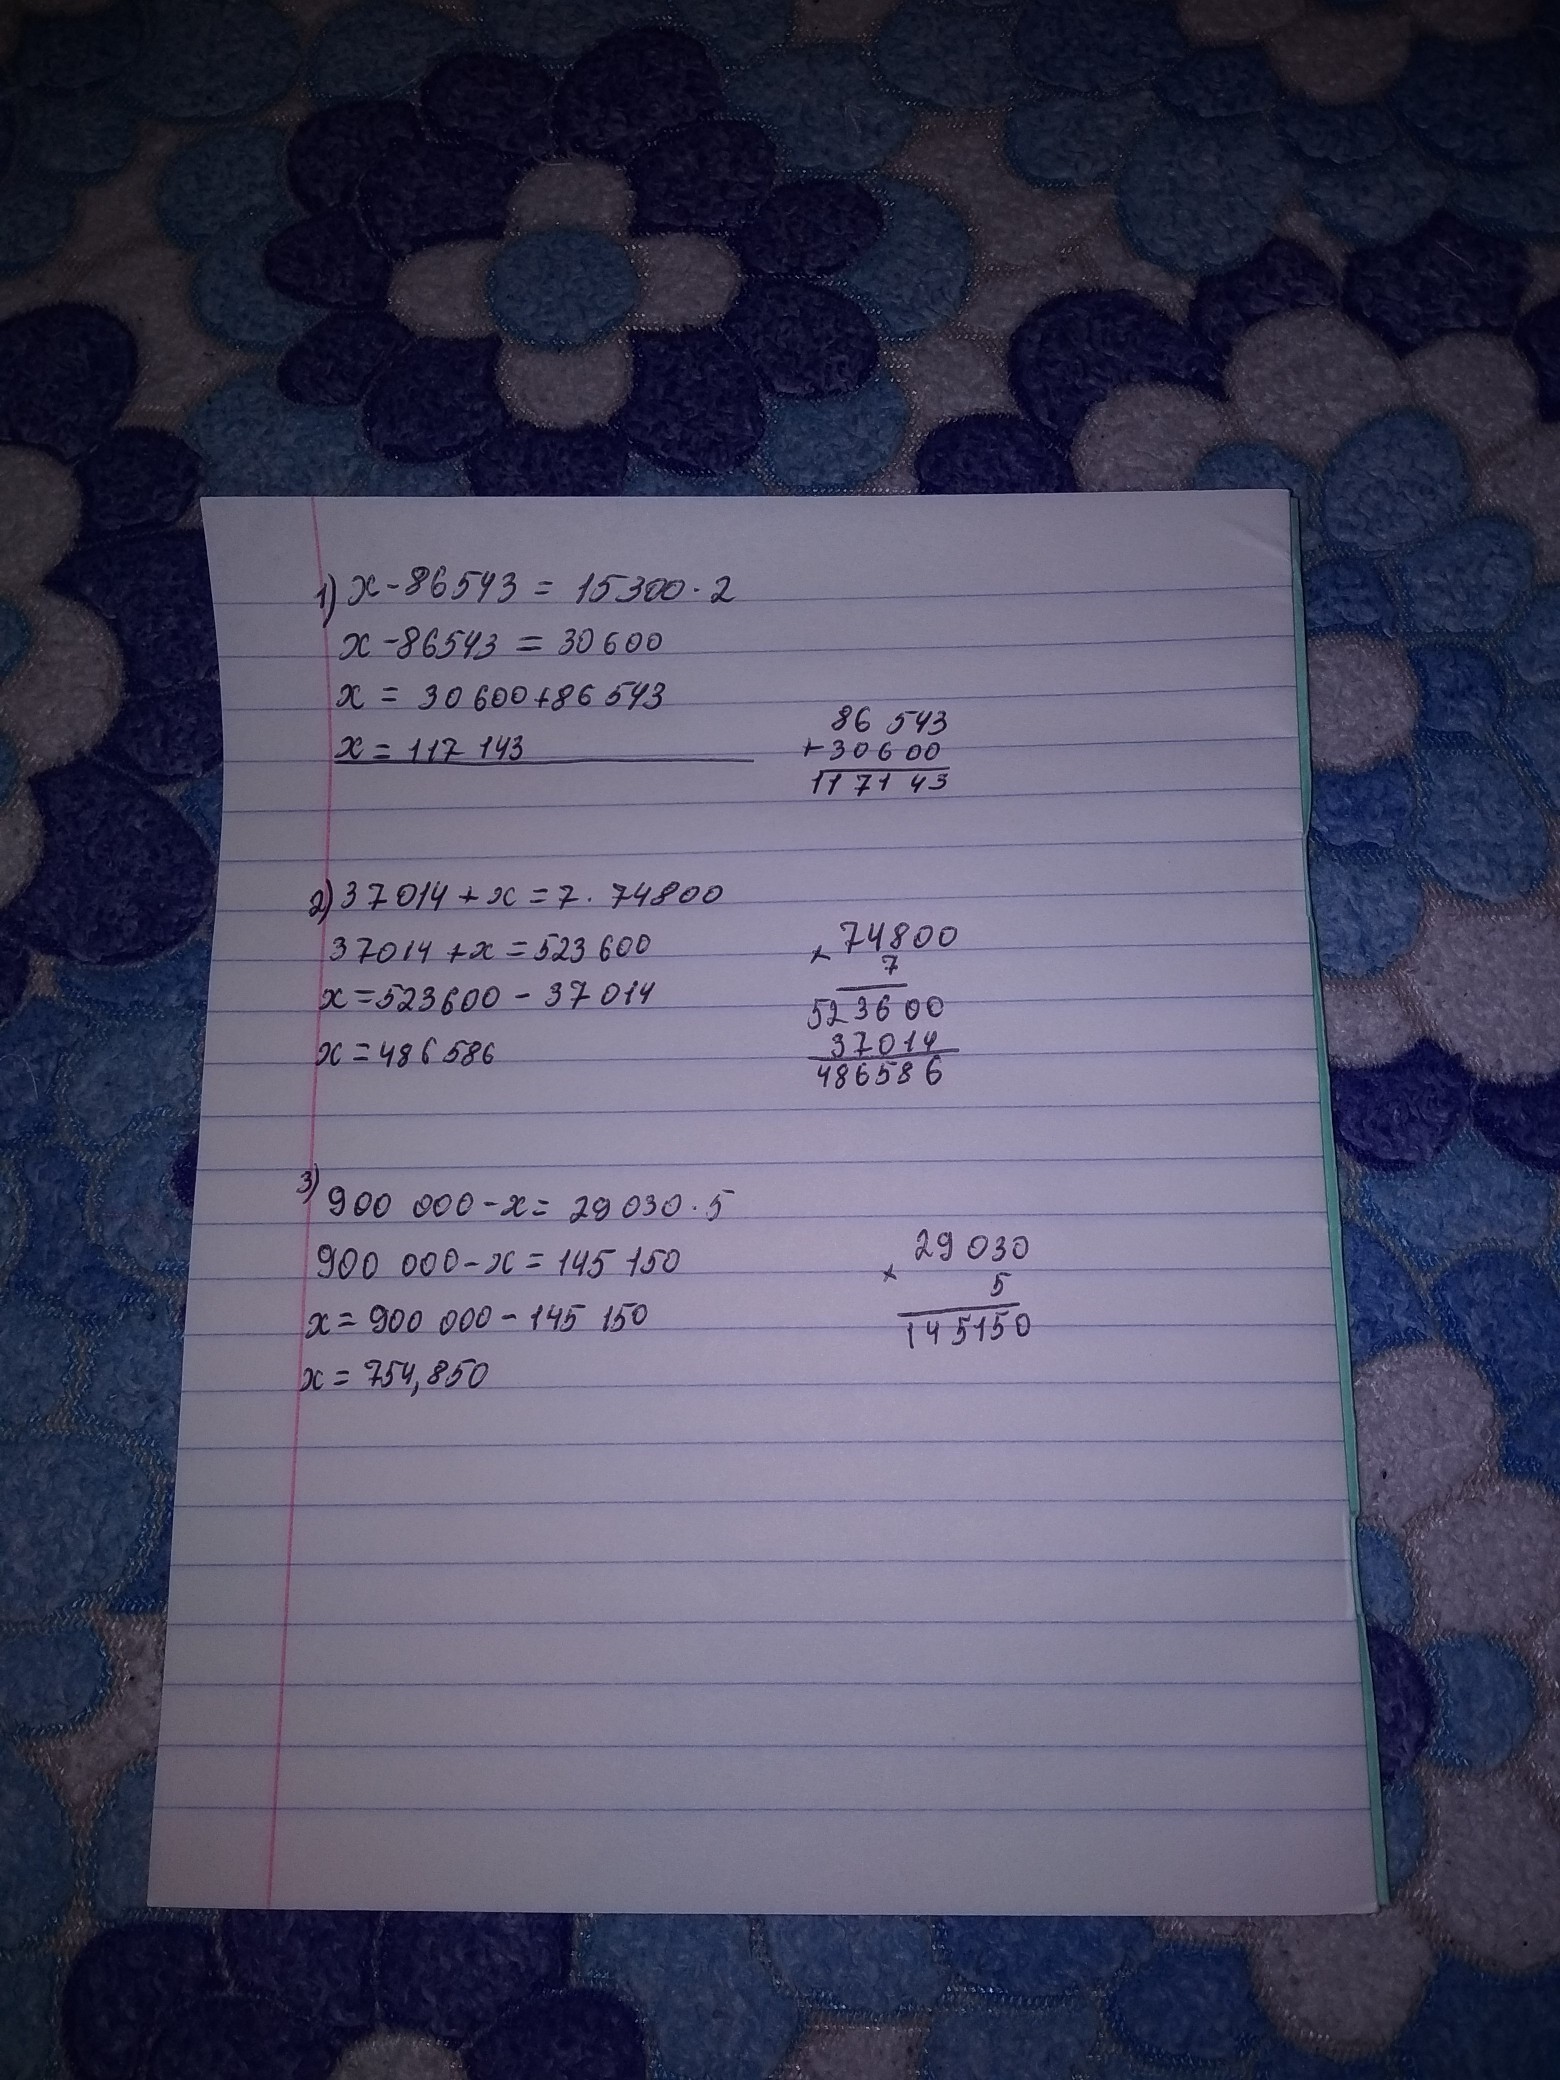 1) x - 86543 = 15300 · 2
x - 86543 = 30600
x = 30600 + 86543
x = 117 143
86 543
+ 30600
117143
2) 37014 + x = 7 · 74800
37014 + x = 523600
x = 523600 - 37014
x = 486586
× 74800
7
523600
37014
486586
3) 900 000 - x = 29030 · 5
900 000 - x = 145 150
x = 900 000 - 145 150
x = 754,850
29 030
× 5
145150